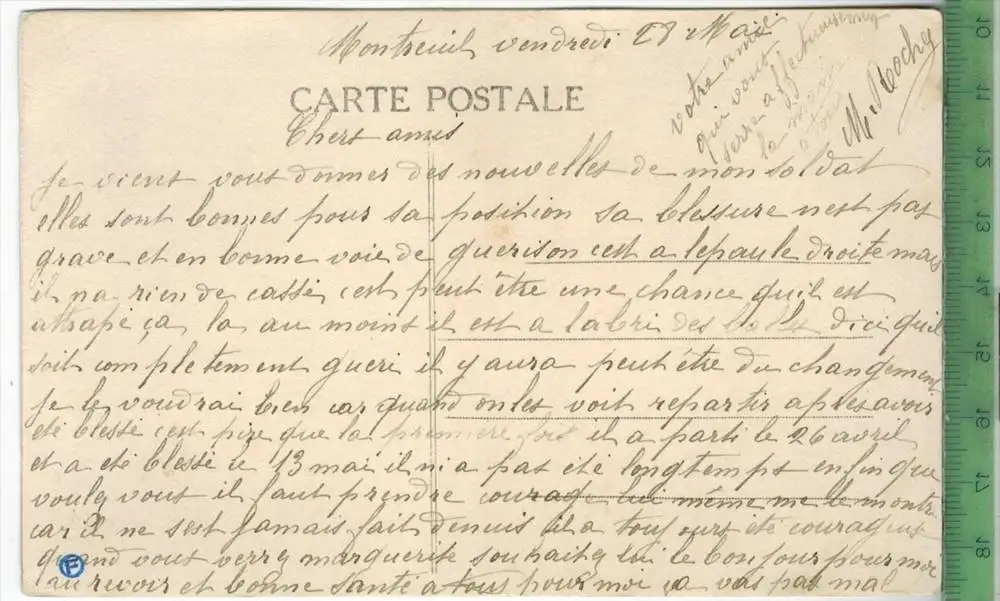 Montreuil vendredi 28 Mai
CARTE POSTALE
Chers amis
Je viens vous donner des nouvelles de mon soldat
elles sont bonnes pour sa position sa blessure nest pas
grave et en bonne voie de guerison cest a lepaule droite mais
il na rien de cassé, cest peut être une chance quil est
attrapé ça la au moins il est a labri des balles dici quil
soit completement gueri il y aura peut être du changement
je le voudrai bien car quand on les voit repartir apres avoir
été blessé cest pire que la première fois il a parti le 26 avril
et a été blessé le 13 mai il ni a pas été longtemps enfin que
vouley vous il faut prendre courage lui même me le montre
car il ne sest jamais fait denuis il a toujours été courageux
quand vous verry marguerite souhaity lui le bonjour pour moi
au revoir et bonne santé a tous pour moi ça vas pas mal
votre amie
qui vous
serre affectueusement
la main
a tous
M. Rochy
10
11
12
13
14
15
16
17
18